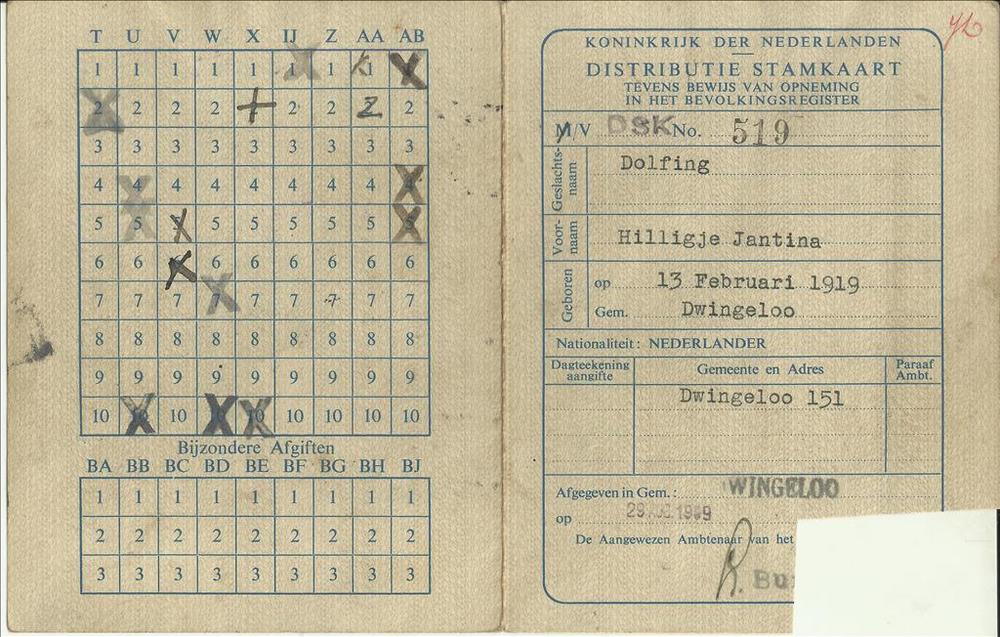 T U V W X IJ Z AA AB
1 1 1 1 1 1 1 1
2 2 2 2 2 2 Z 2
3 3 3 3 3 3 3 3 3
4 4 4 4 4 4 4 4 4
5 5 5 5 5 5 5 5 5
6 6 6 6 6 6 6 6 6
7 7 7 7 7 7 7 7 7
8 8 8 8 8 8 8 8 8
9 9 9 9 9 9 9 9 9
10 10 10 10 10 10 10 10
Bijzondere Afgiften
BA BB BC BD BE BF BG BH BJ
1 1 1 1 1 1 1 1 1
2 2 2 2 2 2 2 2 2
3 3 3 3 3 3 3 3 3
KONINKRIJK DER NEDERLANDEN
DISTRIBUTIE STAMKAART
TEVENS BEWIJS VAN OPNEMING
IN HET BEVOLKINGSREGISTER
M/V DSK No. 519
Geslachts-
naam
Dolfing
Voor-
naam
Hilligje Jantina
Geboren
op 13 Februari 1919
Gem. Dwingeloo
Nationaliteit: NEDERLANDER
Dagteekening
aangifte
Gemeente en Adres
Paraaf
Ambt.
Dwingeloo 151
Afgegeven in Gem.: WINGELOO
op 29 AUG. 1949
De Aangewezen Ambtenaar van het